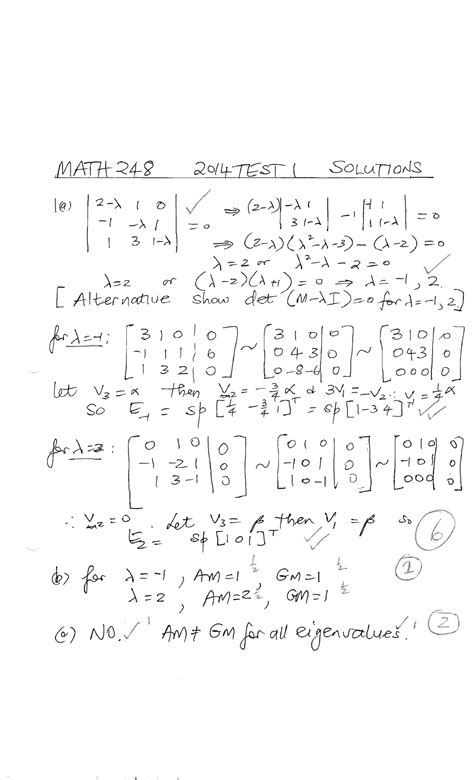 MATH 248 2014 TEST 1 SOLUTIONS
1(a) | 2-λ 1 0 | ✓ ⇒ (2-λ) | -λ 1 | -1 | -1 1 | = 0
| -1 -λ 1 | = 0 | 3 1-λ | | 1 1-λ |
| 1 3 1-λ | ⇒ (2-λ)(λ²-λ-3) - (λ-2) = 0
λ=2 or λ²-λ-2=0 ✓
λ=2 or (λ-2)(λ+1)=0 ⇒ λ=-1, 2.
[Alternative show det (M-λI)=0 for λ=-1, 2]
for λ=-1: [3 1 0 | 0] ~ [3 1 0 | 0] ~ [3 1 0 | 0]
[-1 1 1 | 0] [0 4 3 | 0] [0 4 3 | 0]
[1 3 2 | 0] [0 -8 -6 | 0] [0 0 0 | 0]
let V₃=α then V₂=-3/4 α & 3V₁=-V₂ ∴ V₁=1/4 α
So E₋₁ = sp [1/4 -3/4 1]ᵀ = sp [1 -3 4]ᵀ ✓✓
for λ=2: [0 1 0 | 0] ~ [0 1 0 | 0] ~ [0 1 0 | 0]
[-1 -2 1 | 0] [-1 0 1 | 0] [-1 0 1 | 0]
[1 3 -1 | 0] [1 0 -1 | 0] [0 0 0 | 0]
∴ V₂=0. Let V₃=β then V₁=β so
E₂ = sp [1 0 1]ᵀ ✓✓ 6
(b) for λ=-1, AM=1 ½, GM=1 ½ 1
λ=2, AM=2 ½, GM=1 ½
(c) NO. ✓ 1 AM≠GM for all eigenvalues. ✓ 1 2